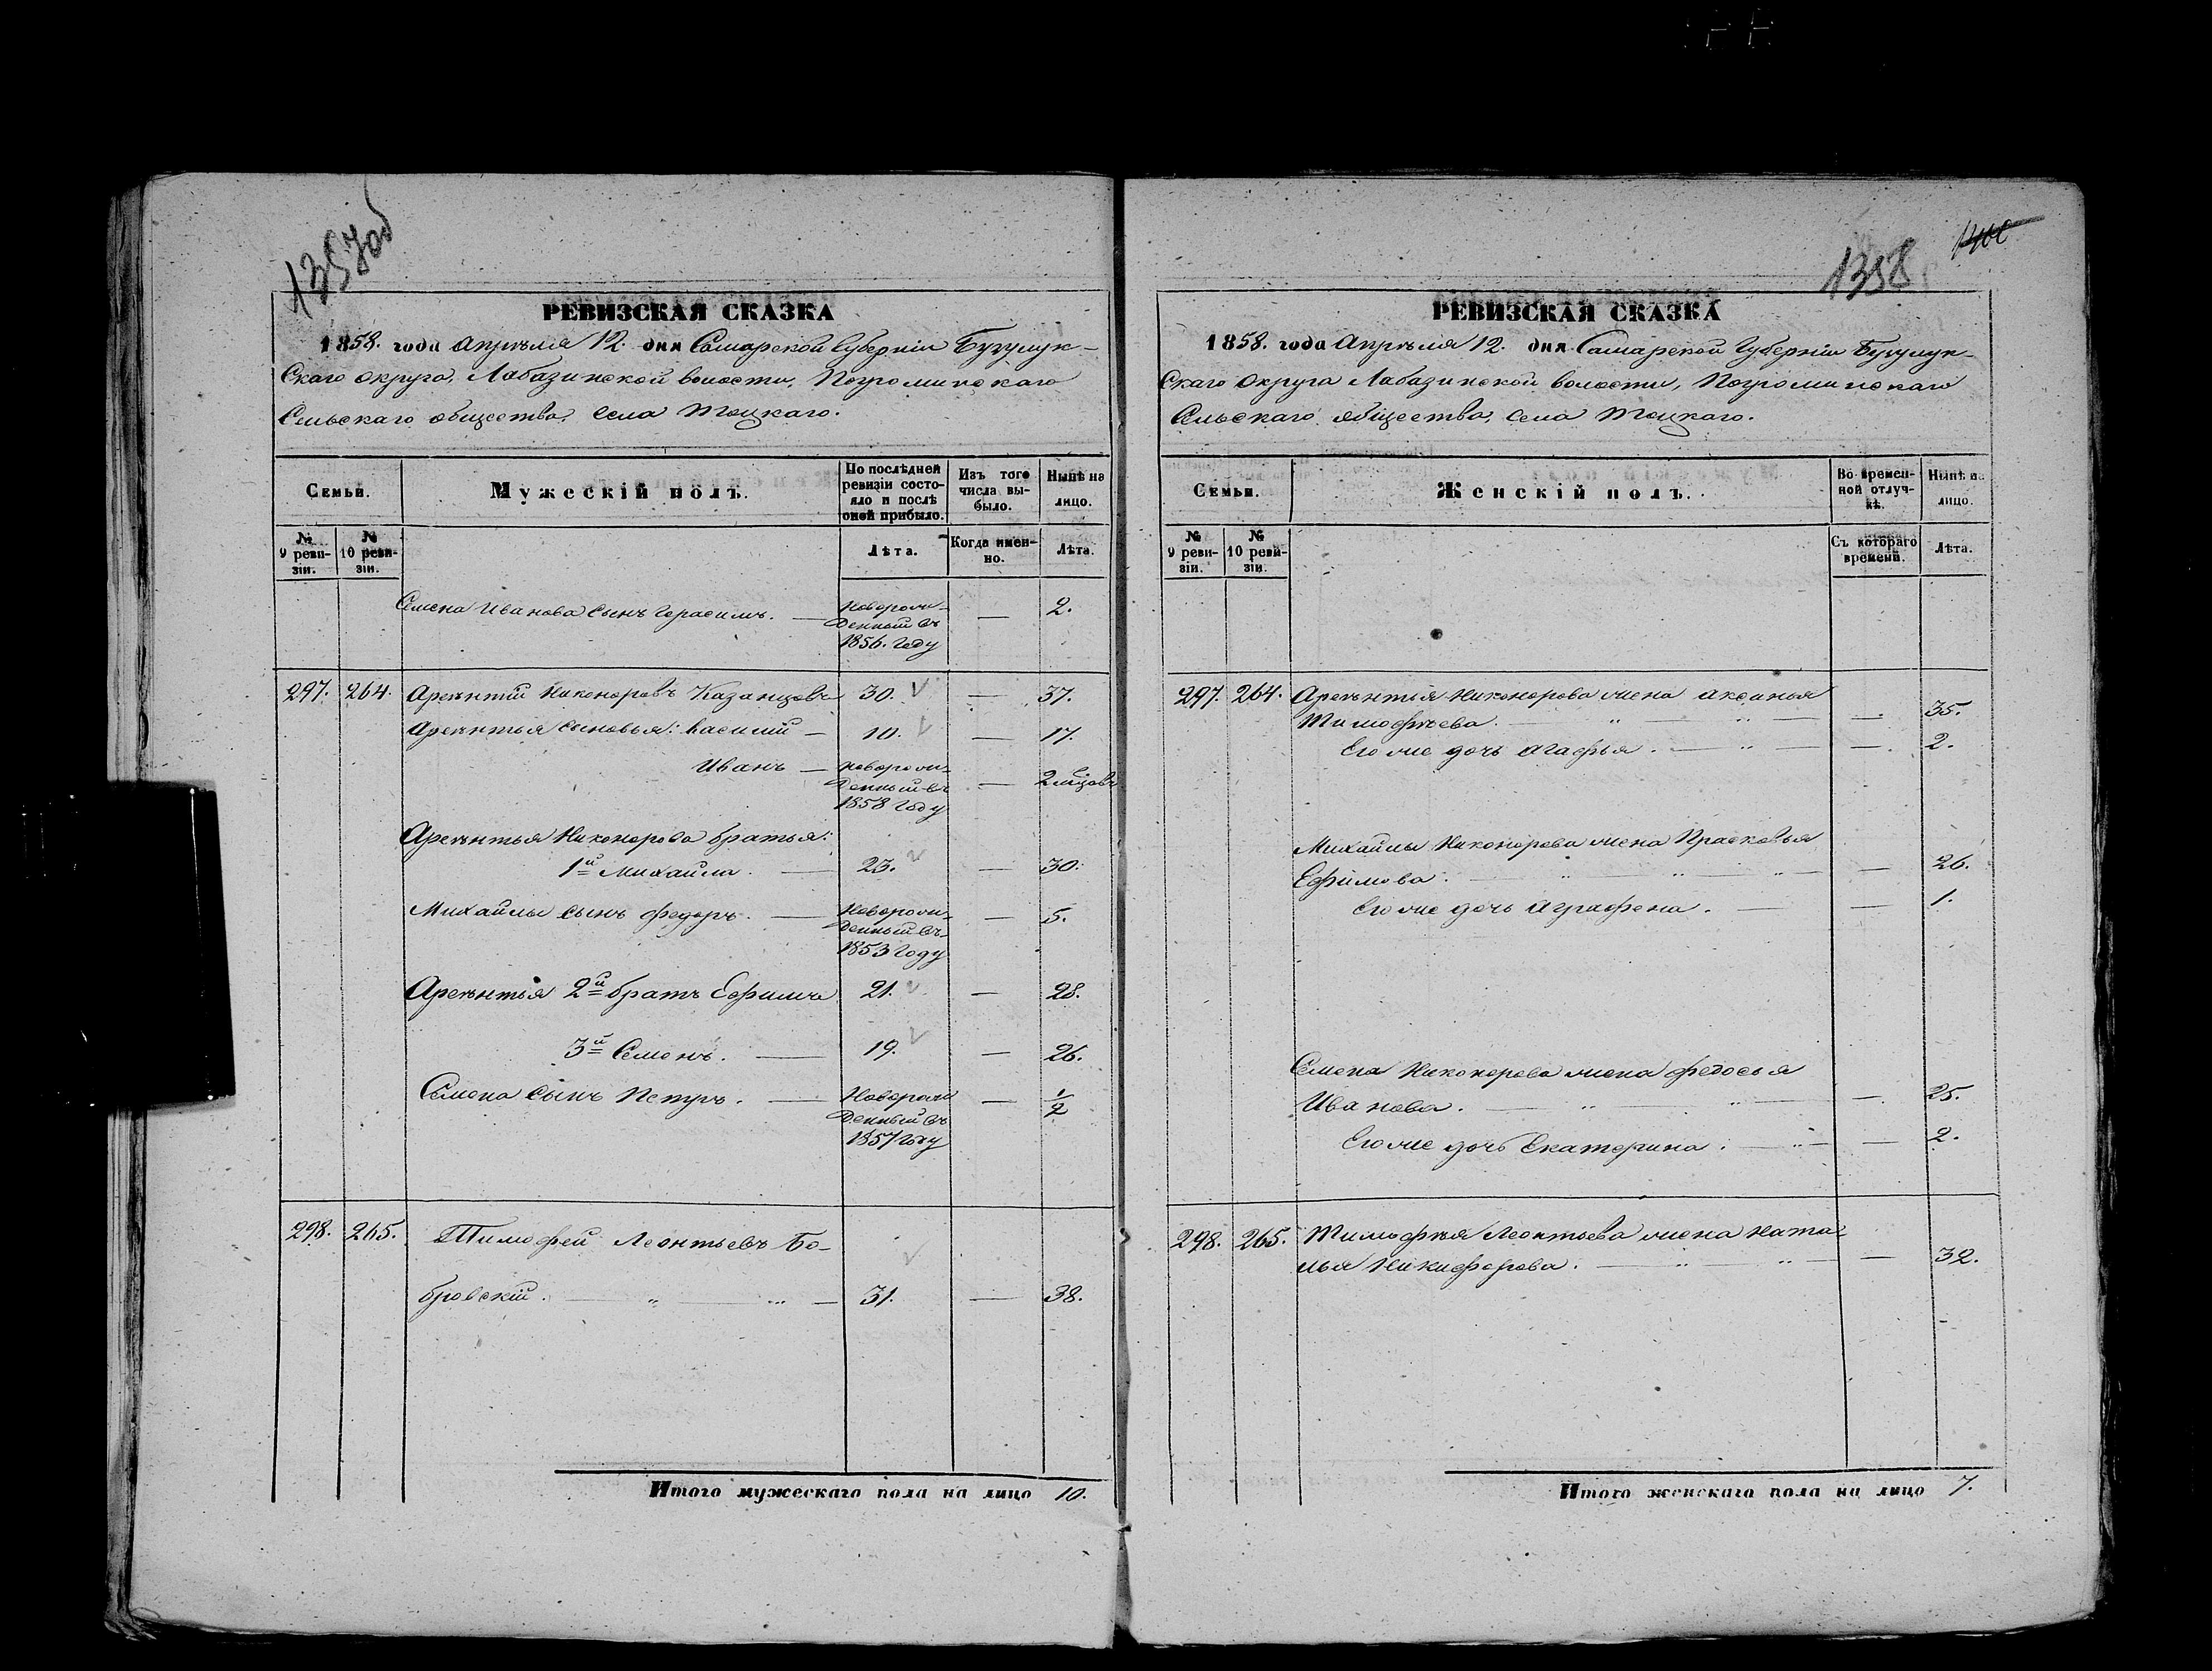 1357об
РЕВИЗСКАЯ СКАЗКА
1858. года Апрѣля 12. дня Самарской Губерніи Бузулук-
скаго округа, Лабазинской волости, Погроминскаго
Сельскаго общества, села Тоцкаго.
Семьи.
Мужескій полъ.
По послѣдней
ревизіи состо-
яло и послѣ
оной прибыло.
Изъ того
числа вы-
было.
Нынѣ на
лицо.
№
9 реви-
зіи.
№
10 реви-
зіи.
Лѣта.
Когда имен-
но.
Лѣта.
Семена Иванова сынъ Герасимъ. — новорож-
денный въ
1856. году — 2.
297. 264. Арентій Никоноровъ Казанцовъ 30. — 37.
Арентья сыновья: Василий — 10. — 17.
Иванъ — новорож-
денный въ
1858 году — 2 мѣцовъ
Арентья Никонорова братья:
1й Михаила. — 23. — 30.
Михайлы сынъ Федоръ. — Новорож-
денный въ
1853 году — 5.
Арентья 2й братъ Ефимъ 21. — 28.
3й Семенъ. — 19. — 26.
Семена сынъ Петръ. — Новорож
денный въ
1857 году — 1/2
298. 265. Тимофей Леонтьевъ Бо-
бровскій. — „ — „ — 31. — 38.
Итого мужескаго пола на лицо 10.
1358
РЕВИЗСКАЯ СКАЗКА
1858. года Апрѣля 12. дня Самарской Губерніи Бузулук-
скаго округа Лабазинской волости, Погроминскаго
Сельскаго общества, села Тоцкаго.
Семьи.
Женскій полъ.
Во времен-
ной отлуч-
кѣ.
Нынѣ на
лицо.
№
9 реви-
зіи.
№
10 реви-
зіи.
Съ котораго
времени.
Лѣта.
297. 264. Арентія Никонорова жена Аксинья
Тимофѣева. — „ — „ — — 35.
Его же дочь Агафья. — „ — — 2.
Михайлы Никонорова жена Прасковья
Ефимова. — „ — „ — „ — — 26.
Его же дочь Аграфена. — — 1.
Семена Никонорова жена Федосья
Иванова. — „ — „ — — 25.
Его же дочь Екатерина. — „ — — 2.
298. 265. Тимофѣя Леонтьева жена Ната-
лья Никифорова. — „ — „ — — 32.
Итого женскаго пола на лицо 7.